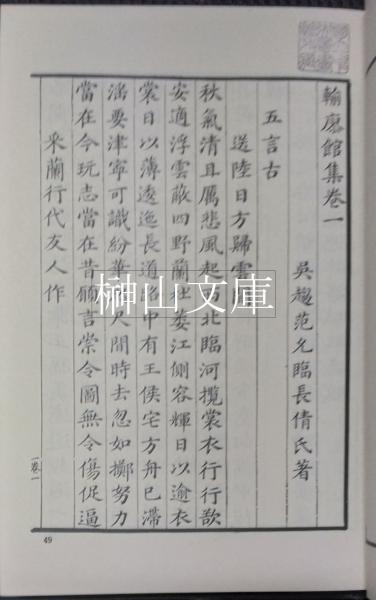 輸廖館集卷一
吳趨范允臨長倩氏著
五言古
送陸日方歸雲間
秋氣清且厲悲風起西北臨河攬裳衣行行欲
安適浮雲蔽四野蘭杜委江側容輝日以逾衣
裳日以薄透迤長道中有王侯宅方舟已滯
涵要津寧可識紛華尺間時去忽如擲努力
當在今玩志當在昔願言崇令圖無令傷促逼
采蘭行代友人作
卷一
49
榊山文庫